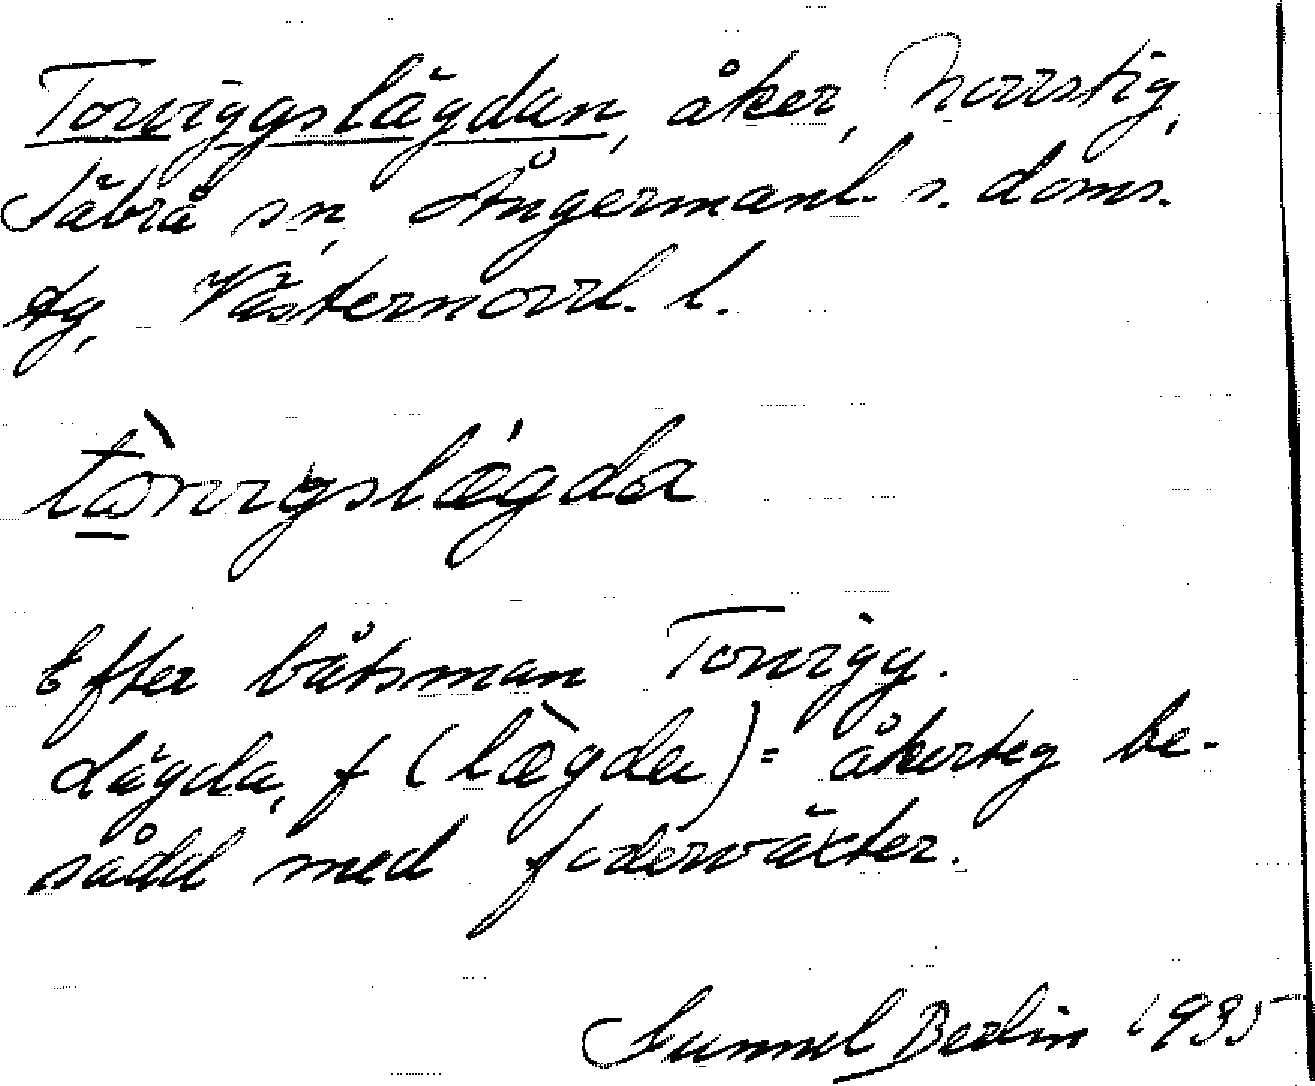 Torviggslägdan, åker, Norrstig,
Säbrå sn, Ångermanl. s. doms.
dg, Västernorrl. l.
tòrvigslægda
Efter båtsman Torvigg.
Lägda, f (lægda) = åkerteg be-
sådd med foderväxter.
Gunnel Berlin 1935